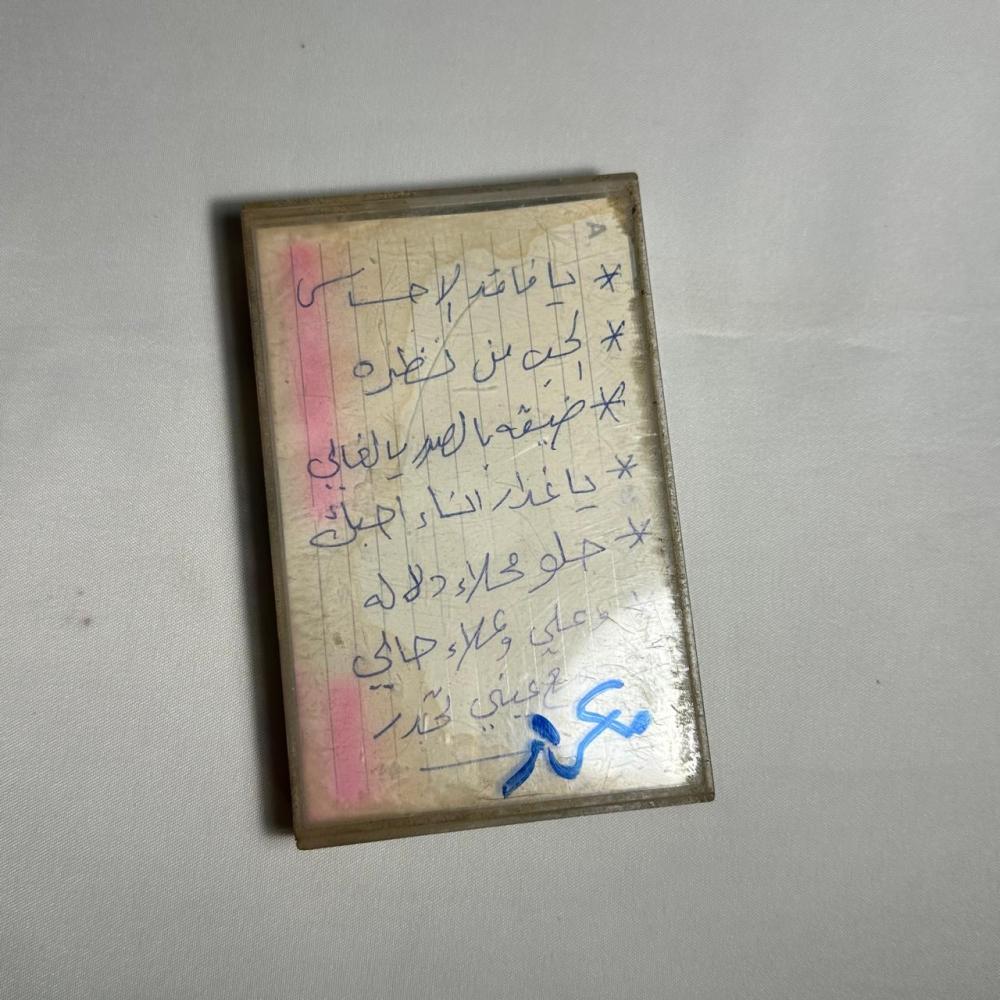 A
* يا فاقد الاحساس
* الحب من نظره
* ضيقه بالصدر يالغالي
* يا غدار انساء احبك
* حلو محلاء دلاله
وعلي وعلاء حالي
عيني تحدر